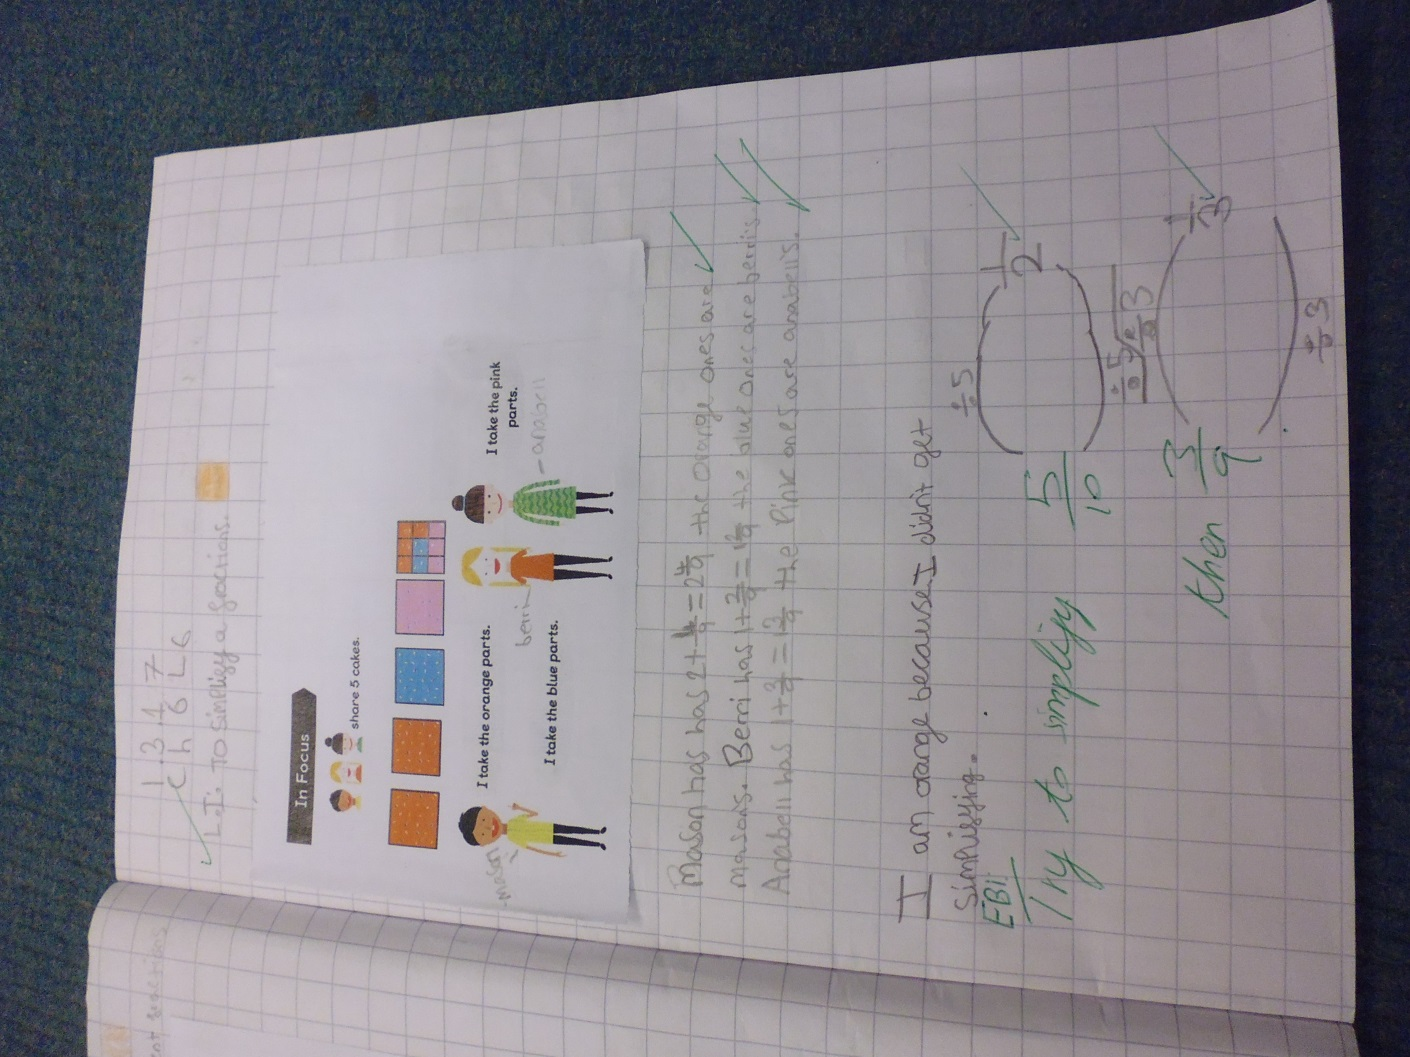 1.3.17
Ch 6 L6
L.I. To simplify a fractions.
In Focus
share 5 cakes.
I take the orange parts.
I take the pink
parts.
I take the blue parts.
mason
berri
anabell
Mason has has 2 + 4/9 = 2 4/9 the orange ones are
masons. Berri has 1 + 2/9 = 1 2/9 the blue ones are berri's.
Anabell has 1 + 3/9 = 1 3/9 the Pink ones are anabells.
I am orange because I didn't get
simplifying.
EBI:
Try to simplify 5/10 ÷5 1/2
÷5
then 3/9 ÷3 1/3
÷3